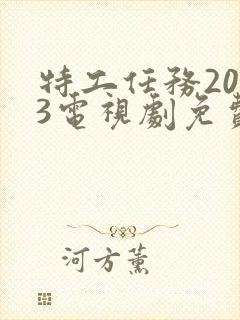 特工任務20
3電視劇免費
河方薰